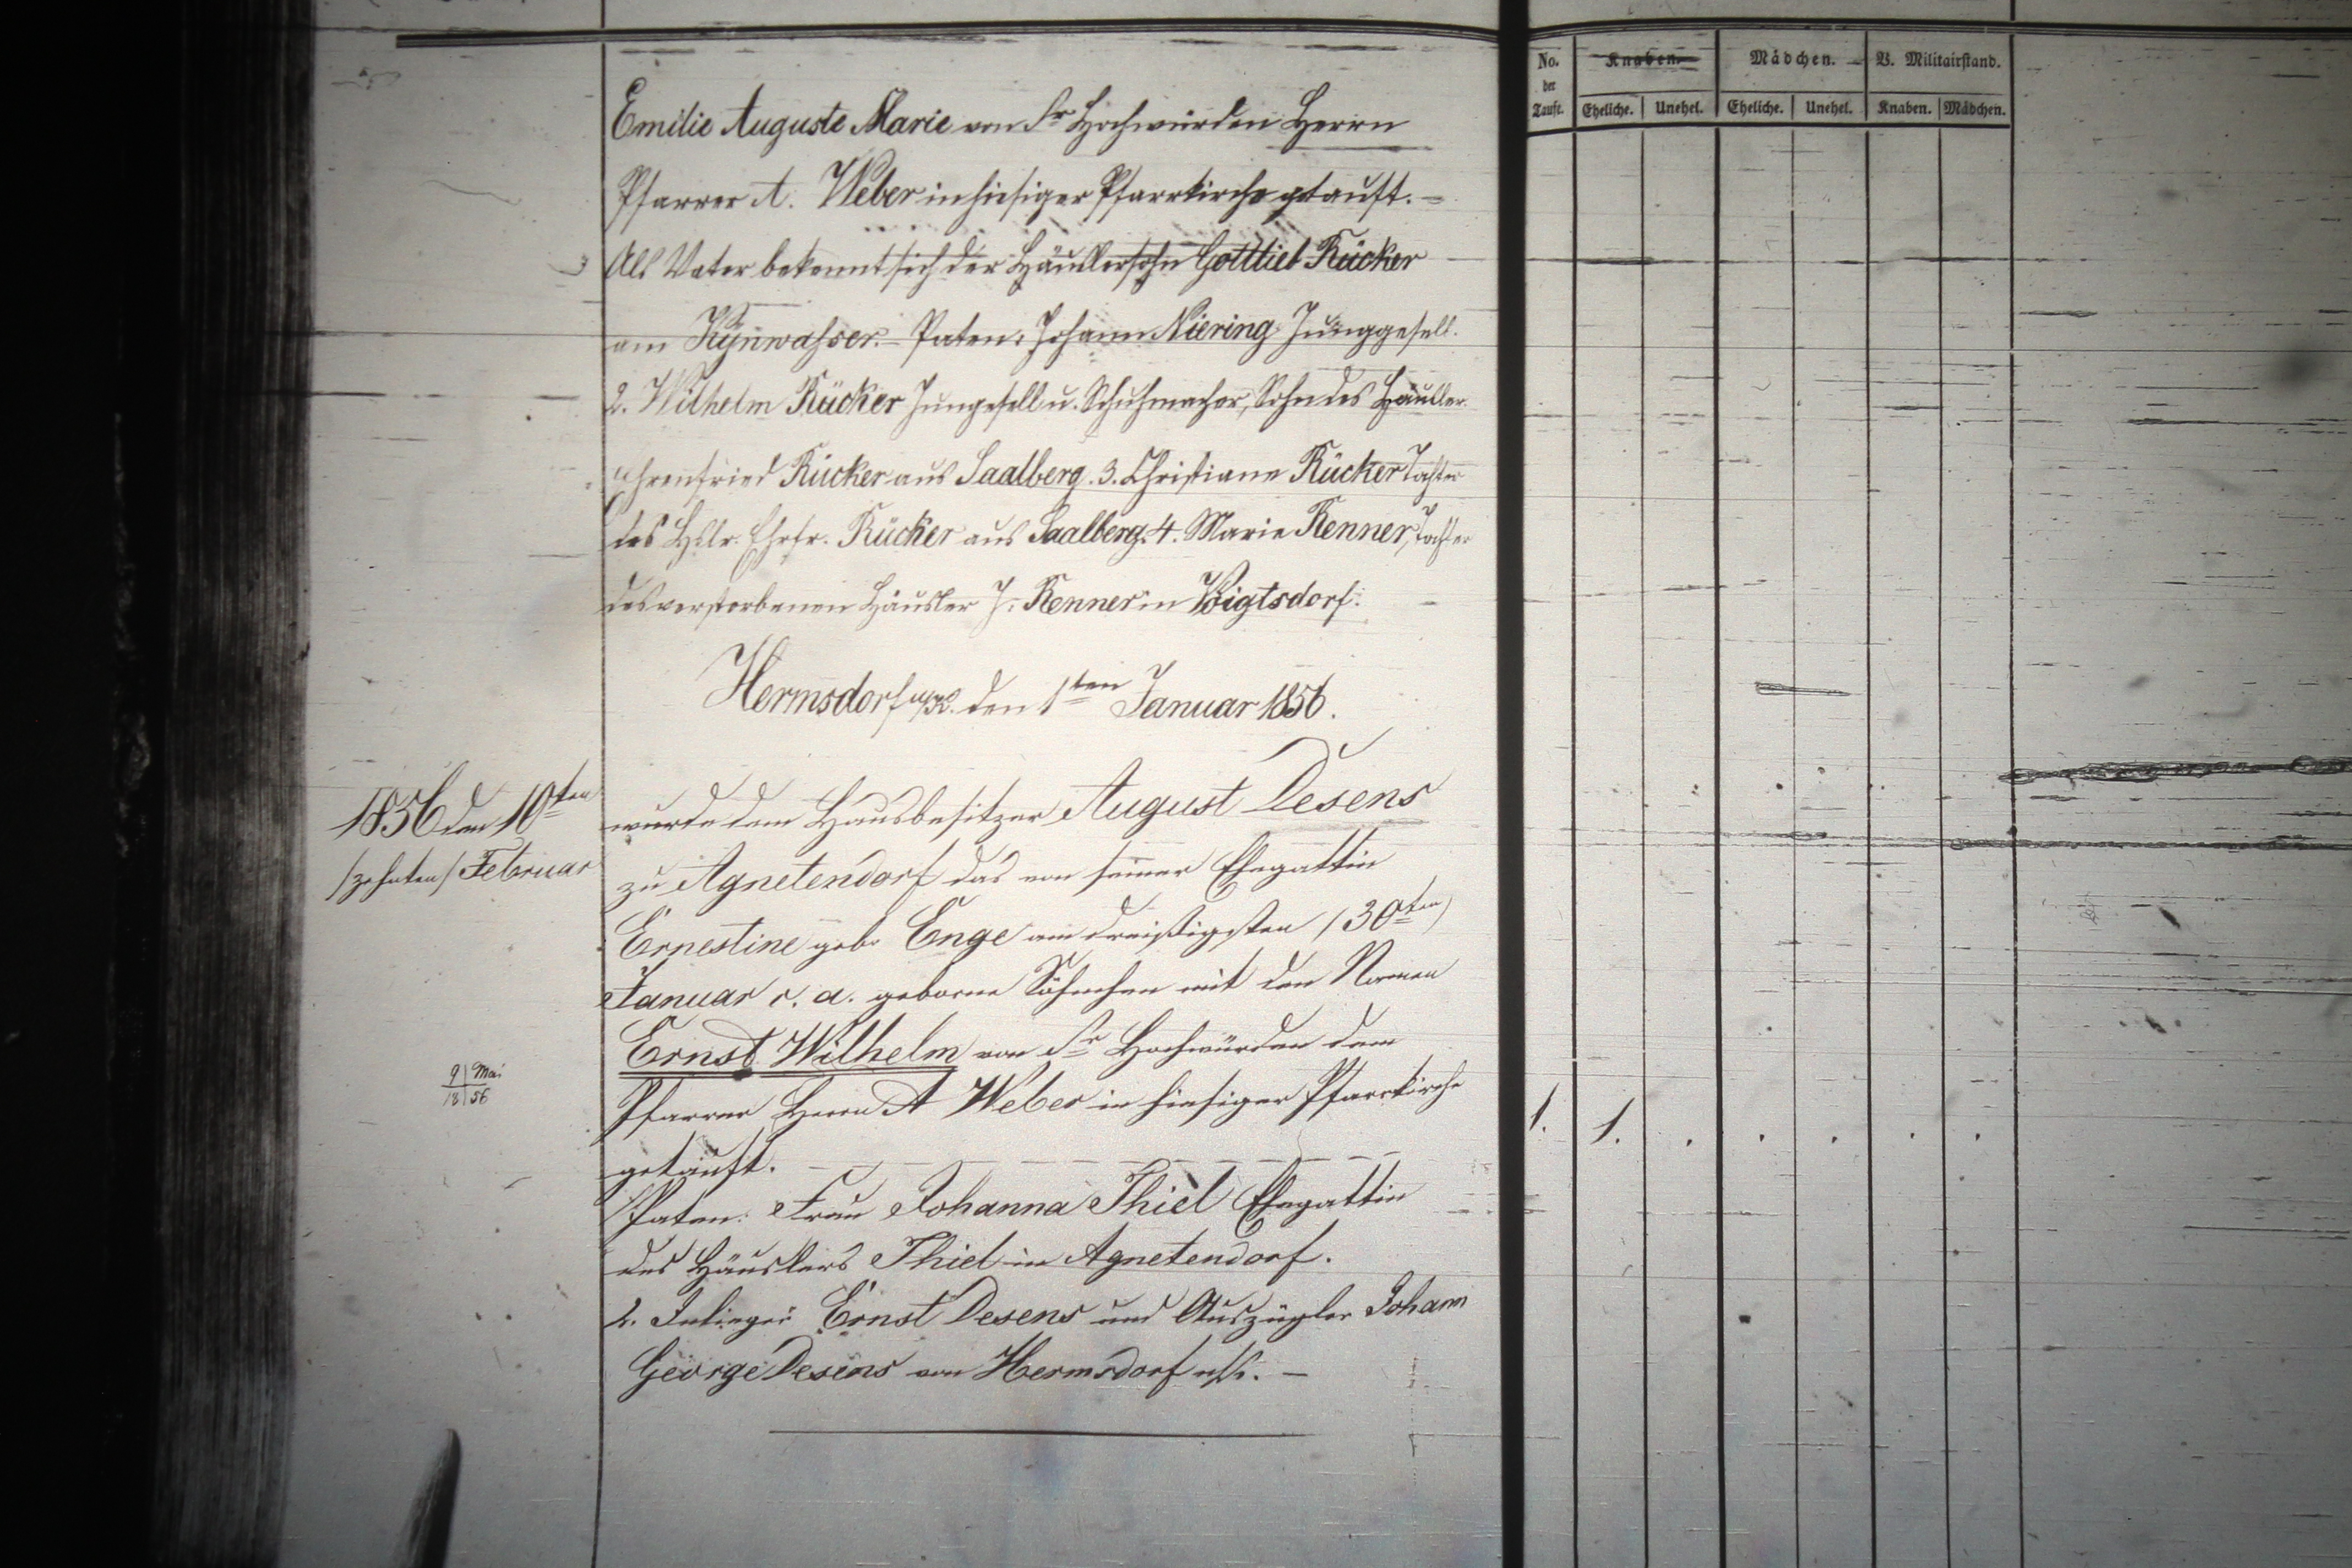 Emilie Auguste Marie von Sr Hochwürden Herrn
Pfarrer A. Weber in hiesiger Pfarrkirche getauft. –
Als Vater bekennt sich der Häuslersohn Gottlieb Rücker
am Kynwasser. – Paten: Johann Niering Junggesell.
2. Wilhelm Rücker Jungesell u. Schuhmacher, Sohn des Häusler
Ehrenfried Rücker aus Saalberg. 3. Christiane Rücker Tochter
des Hslr. Ehrfr. Rücker aus Saalberg. 4. Marie Renner, Tochter
des verstorbenen Häusler J. Renner in Voigtsdorf. –
Hermsdorf u/K. den 1ten Januar 1856.
1856 den 10ten
/zehnten/ Februar
wurde dem Hausbesitzer August Desens
zu Agnetendorf das von seiner Ehegattin
Ernestine geb. Enge am dreißigsten (30ten)
Januar c. a. geborne Söhnchen mit den Namen
Ernst Wilhelm von Sr Hochwürden dem
Pfarrer Herrn A Weber in hiesiger Pfarrkirche
getauft.
9 Mai
18 56
Paten: Frau Johanna Thiel Ehegattin
des Häuslers Thiel in Agnetendorf.
2. Inlieger Ernst Desens und Auszügler Johann
George Desens von Hermsdorf u/K. –
No. der Taufe.
Knaben.
Mädchen.
B. Militairstand.
Eheliche.
Unehel.
Eheliche.
Unehel.
Knaben.
Mädchen.
1.
1.
. . . . .